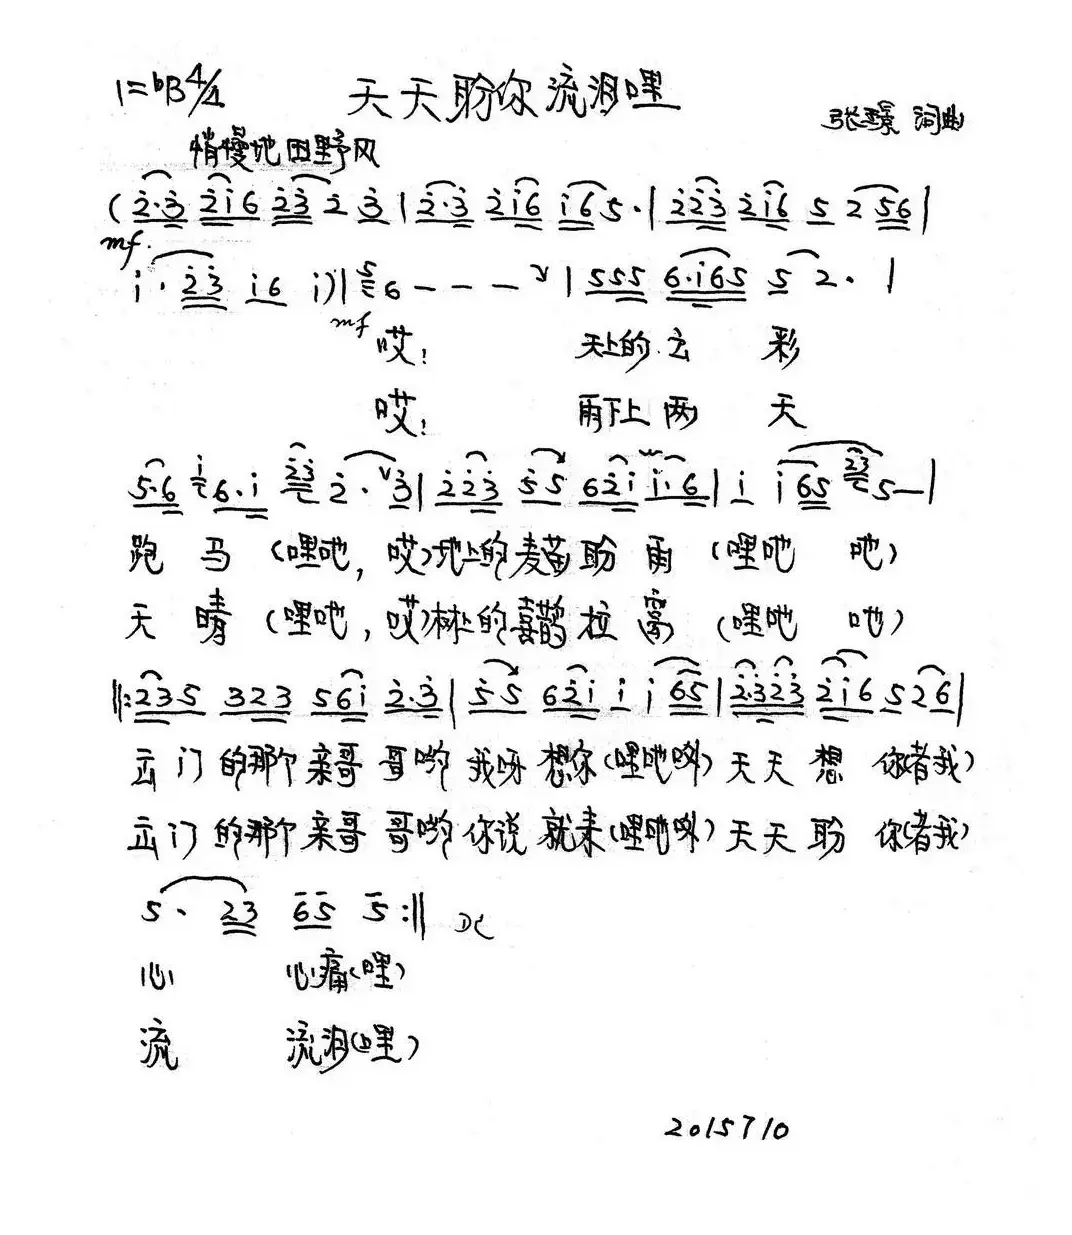 1=♭B 4/4 天天盼你流泪哩
张璟 词曲
悄慢地田野风
(2̇·3̇ 2̇i6 2̇3̇ 2̇ 3̇|2̇·3̇ 2̇i6 i65·|2̇2̇3̇ 2̇i6 5 2 56|
mf.
i·2̇3̇ i6 i)|5 6 - - - ∨|555 6·i65 5 2·|
mf 哎! 天上的云 彩
哎! 雨下上两 天
5·6 i 6·i 2̇3̇ 2̇·∨3̇|2̇2̇3̇ 5 5 62̇i i·6|i i65 2̇3̇ 5-|
跑马(哩吔,哎)地上的麦苗盼雨(哩吔 吔)
天晴(哩吔,哎)林上的喜鹊拉窝(哩吔 吔)
‖:235 323 56i 2̇·3̇|5 5 62̇i i i65|2̇·3̇2̇3̇ 2̇i6 526|
立门的那个亲哥哥哟我呀想你(哩吔呦)天天想你(者我)
立门的那个亲哥哥哟你说就来(哩吔呦)天天盼你(者我)
5· 23 65 5:‖ DC
心 心痛(哩)
流 流泪(哩)
2015 7 10